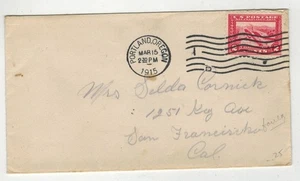 PORTLAND, OREGON
MAR 15
1915
U.S. POSTAGE
Mrs Selda Cormick
1251 Key Ave
San Francisco
Cal.